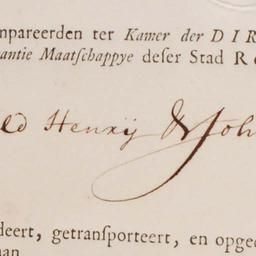 mpareerden ter Kamer der DIR
antie Maatſchappye deſer Stad R
ld Henrÿ & Joh
deert, getranſporteert, en opged